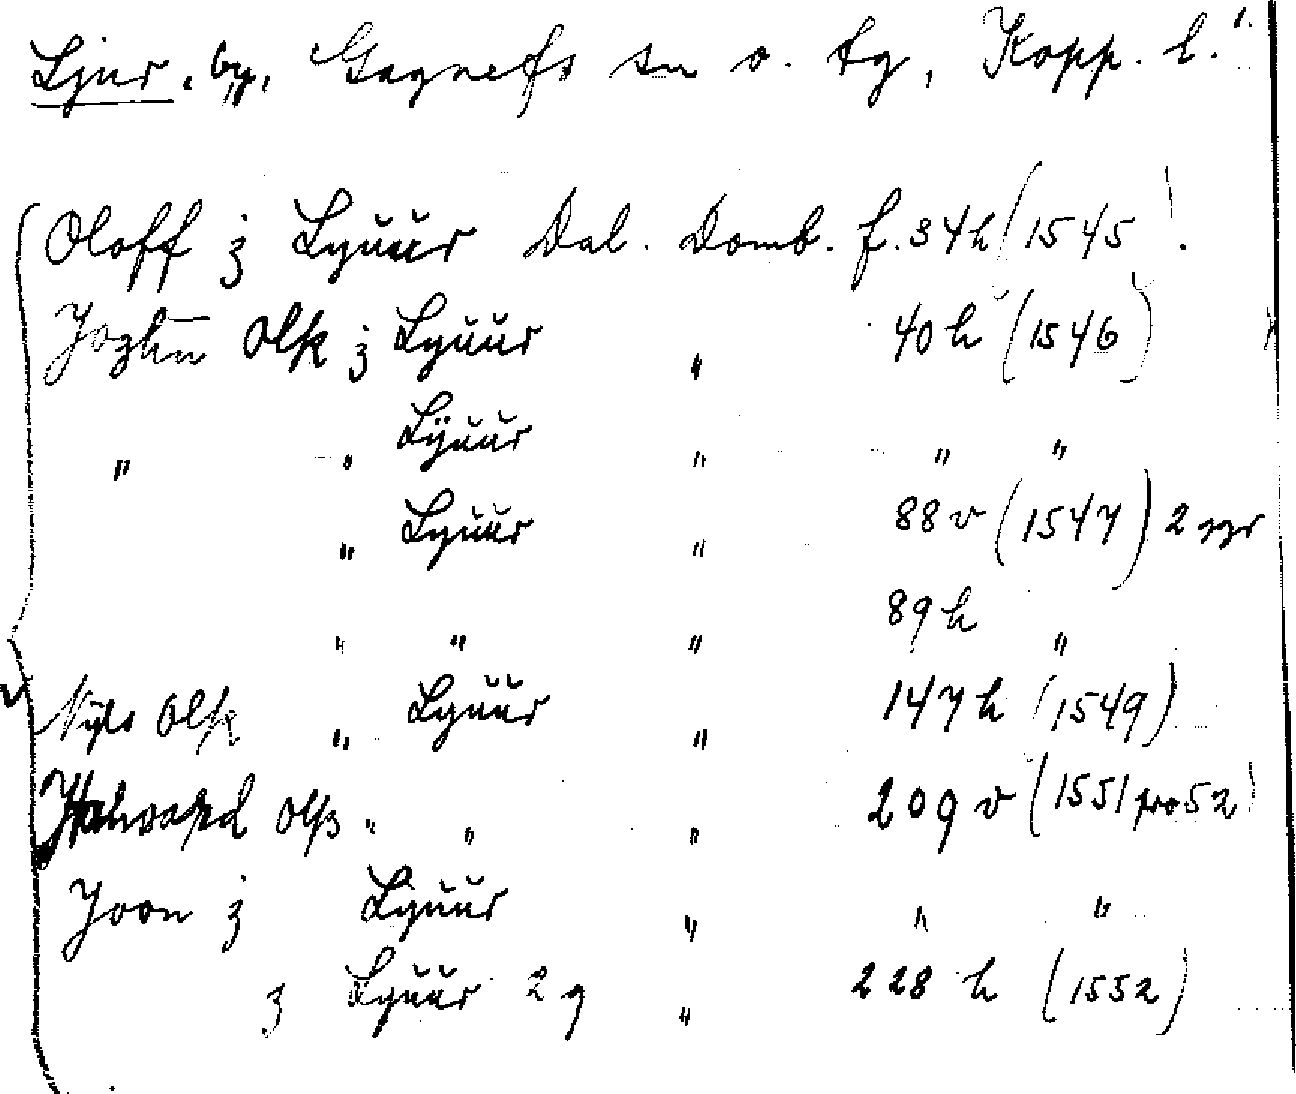 Ljur, by, Gagnefs sn o. tg, Kopp. l.
Oloff ȝ Lyŭŭr Dal. Domb. f. 34h (1545).
Joghn Olsk ȝ Lyŭŭr " 40 h (1546)
" " Lÿŭŭr " " "
" Lyŭŭr " 88 v (1547) 2 ggr
" " " 89 h "
Nyls Olsk " Lyŭŭr " 147 h (1549)
Halvard Olss " " " 209 v (1551 pro 52)
Joon ȝ Lyŭŭr " " "
ȝ Lyŭŭr 2 g " 228 h (1552)